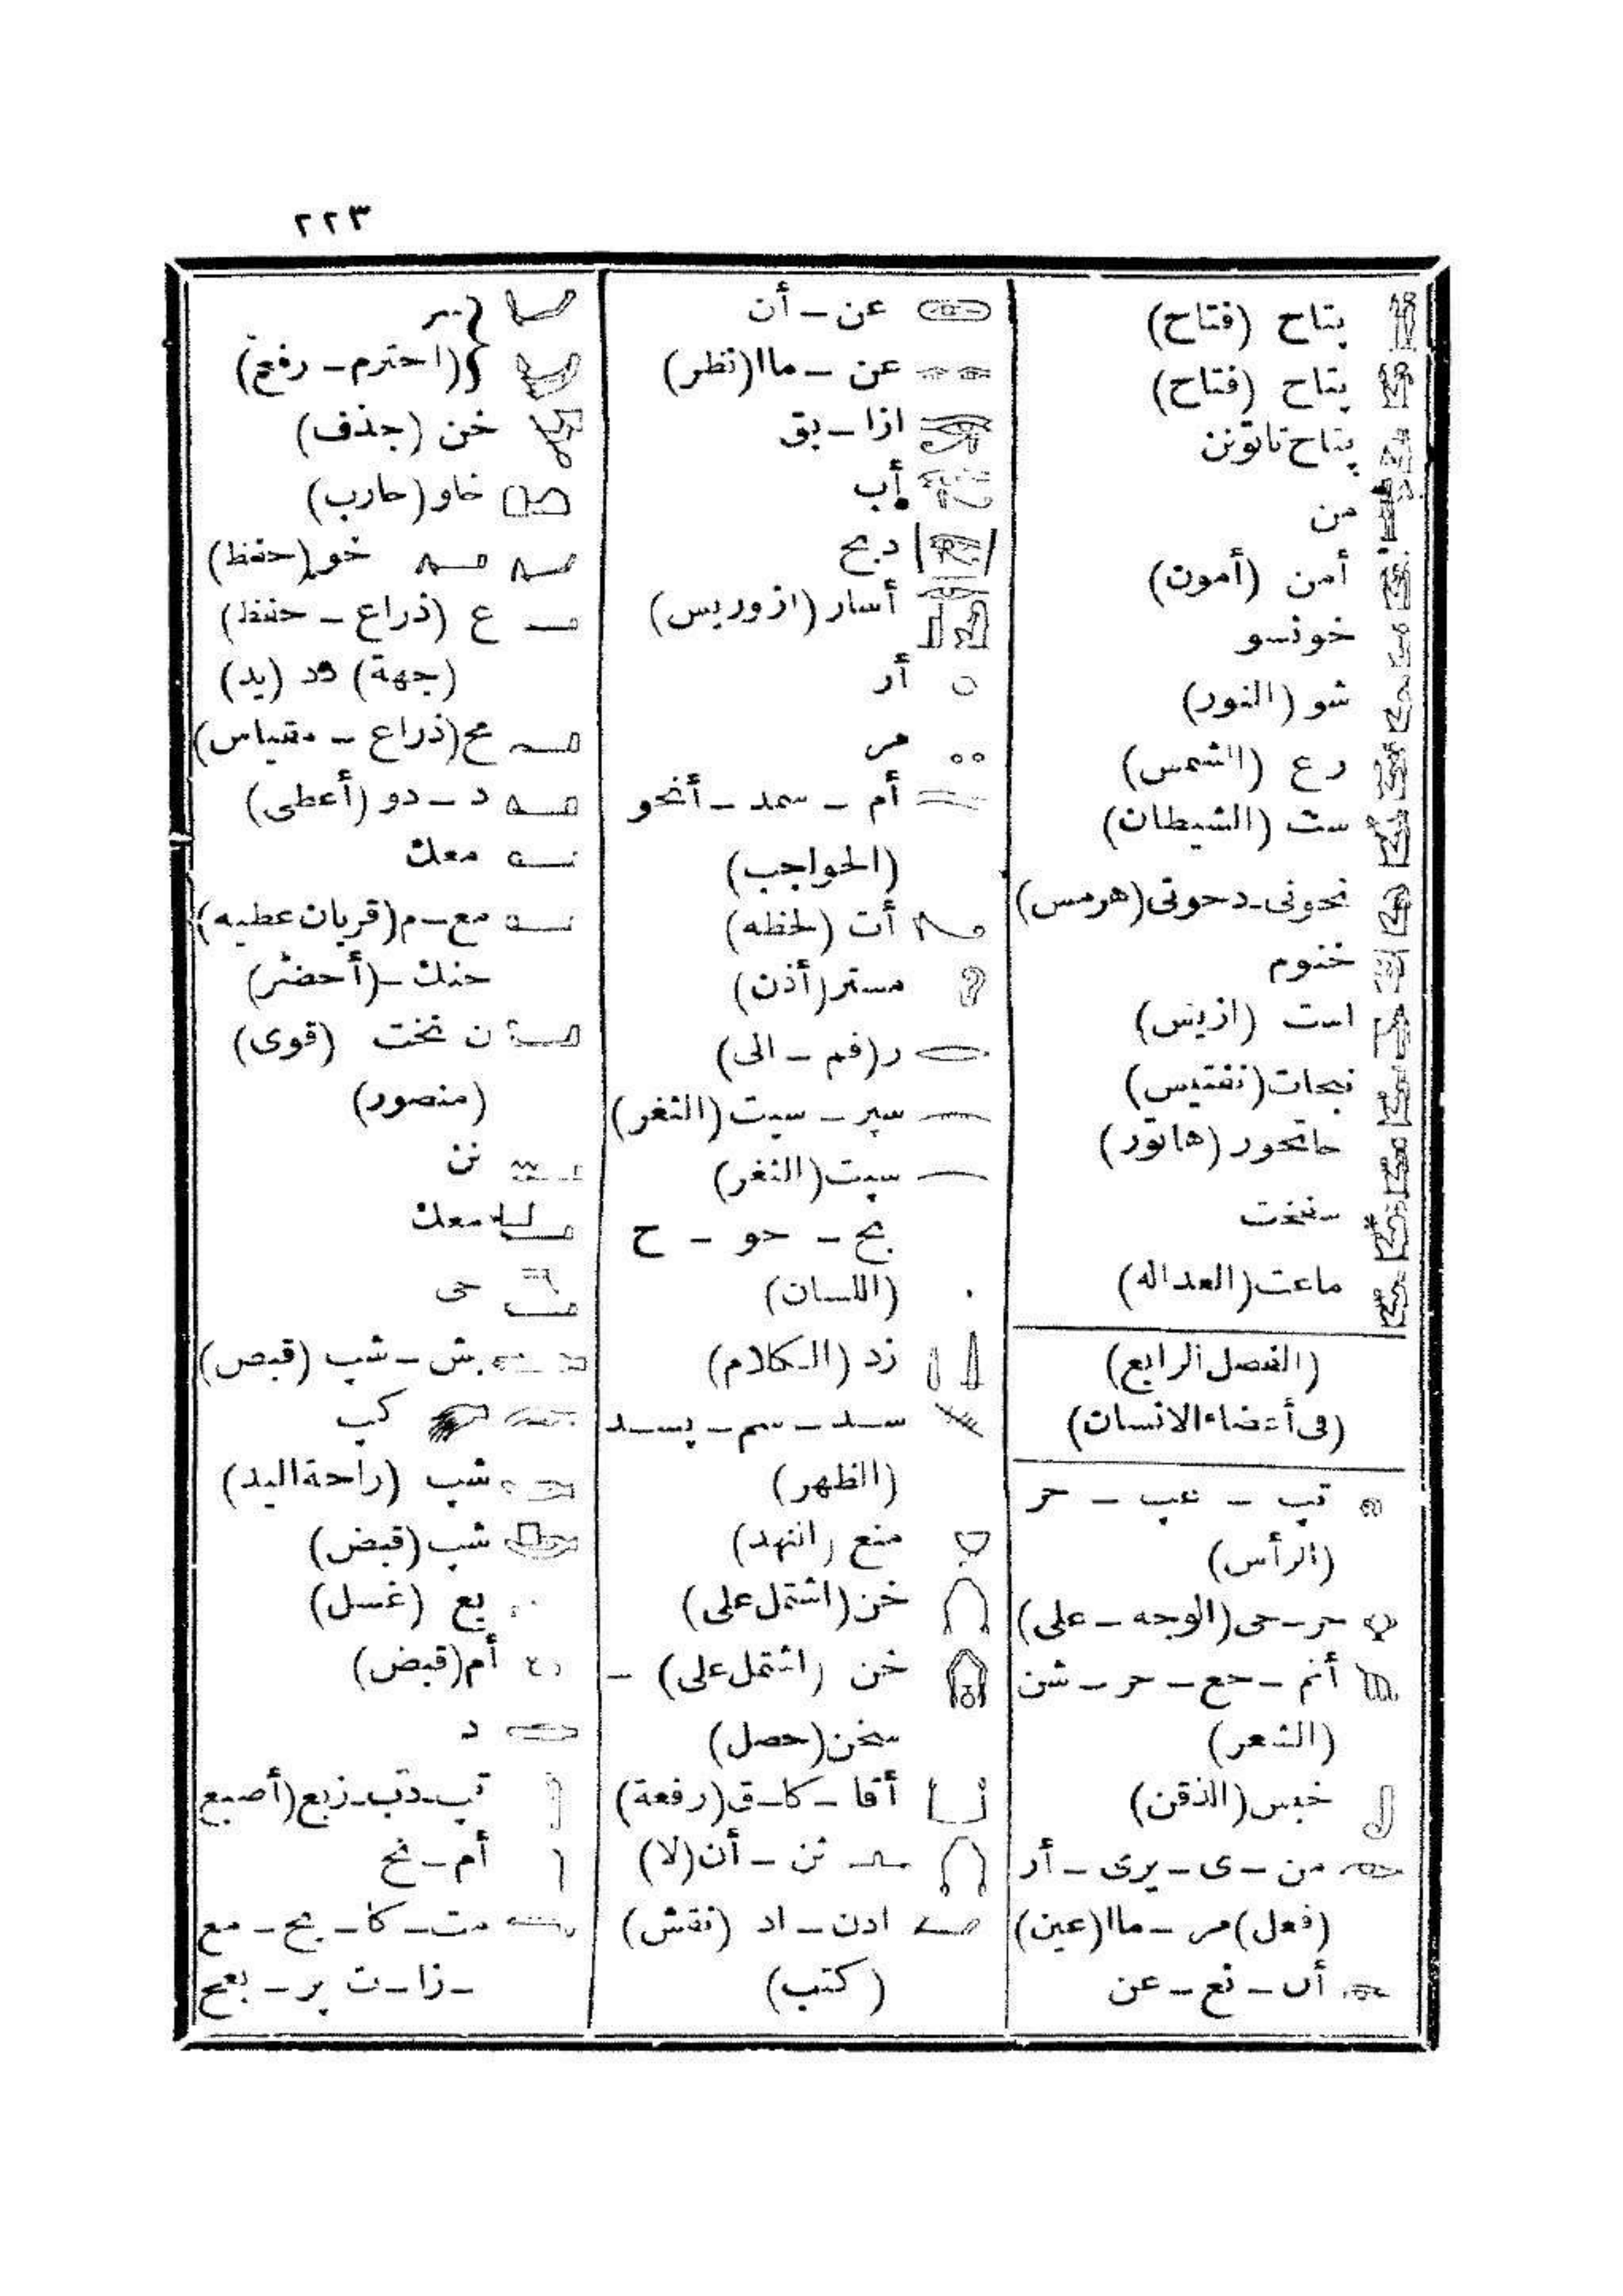 ٢٢٣
پتاح (فتاح)
پتاح (فتاح)
پتاح تاتونن
من
أمن (أمون)
خونسو
شو (النور)
رع (الشمس)
ست (الشيطان)
تحوتى-دحوتى(هرمس)
خنوم
است (ازيس)
نبحات(نفتيس)
حاتحور (هاتور)
سفخت
ماعت(العداله)
(الفصل الرابع)
(فى أعضاء الانسان)
تپ – عپ – حر
(الرأس)
حر-حى(الوجه – على)
أنم – حع – حر – شن
(الشعر)
خبس(الذقن)
من – ى – يرى – أر
(فعل)مر – ماا(عين)
أن – نع – عن
عن – أن
عن – ماا(نظر)
ازا – بق
أب
دبح
أسار(ازوريس)
أر
مر
أم – سمد – أنحو
(الحواجب)
أت (لحظه)
مستر(أذن)
ر(فم – الى)
سپر – سپت(الثغر)
سپت(الثغر)
بح – حو – ح
(اللسان)
زد (الكلام)
سد – سم – پسد
(الظهر)
منع (النهد)
خن(اشتمل على)
خن (اشتمل على) –
سخن(حصل)
أقا – كا-ق(رفعة)
نن – أن(لا)
ادن – اد (نقش)
(كتب)
(احترم – رفع)
خن (جذف)
خاو(حارب)
خو(حفظ)
ع (ذراع – حفظ)
(جهة) دد (يد)
مح(ذراع – مقياس)
د – دو (أعطى)
معك
مع – م(قربان عطيه)
حنك – (أحضر)
ن نخت (قوى)
(منصور)
نن
معك
حى
ش – شپ (قبض)
كپ
شپ (راحة اليد)
شپ(قبض)
يع (غسل)
أم(قبض)
د
تپ-دب-زبع(أصبع
أم – نح
مت – كا – بح – مع
– زا – ت پر – بعح